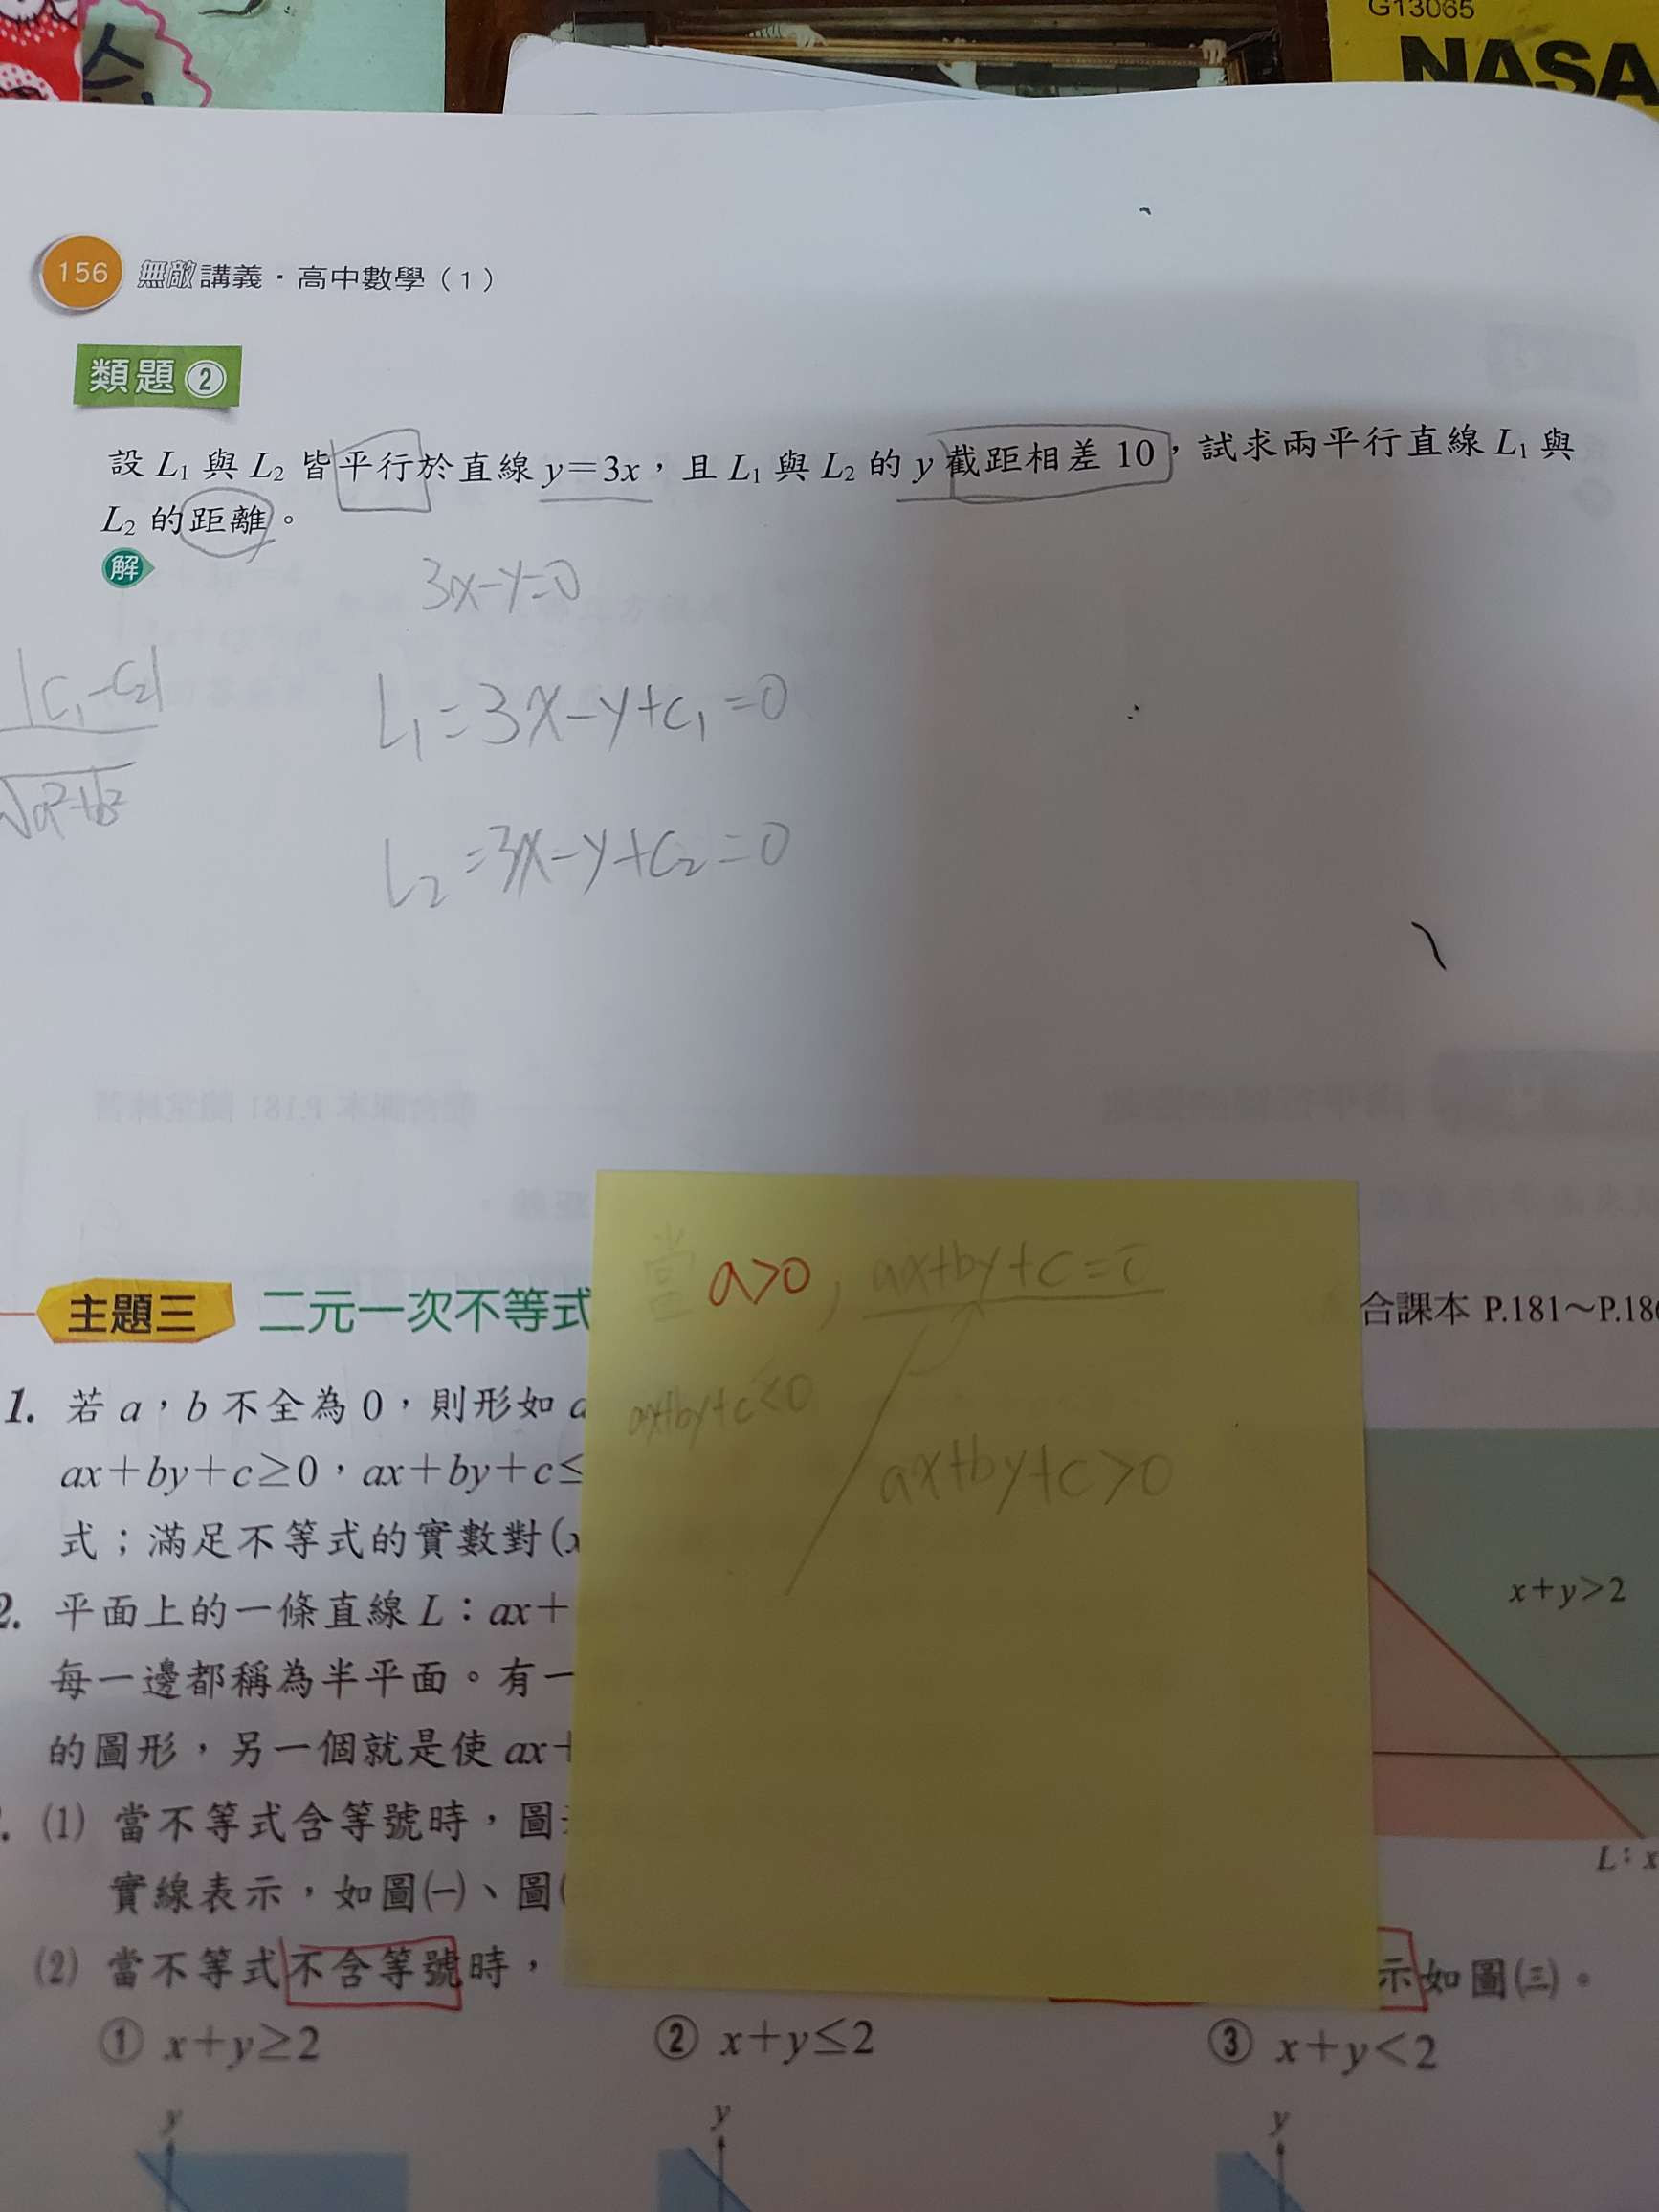 G13065
NASA
156 無敵講義·高中數學(1)
類題②
設 L₁ 與 L₂ 皆平行於直線 y=3x,且 L₁ 與 L₂ 的 y 截距相差 10,試求兩平行直線 L₁ 與
L₂ 的距離。
解
3x-y=0
|c₁-c₂|
√a²+b²
L₁=3x-y+c₁=0
L₂=3x-y+c₂=0
當 a>0, ax+by+c=0
ax+by+c<0
ax+by+c>0
主題三 二元一次不等式
合課本 P.181~P.186
1. 若 a,b 不全為 0,則形如
ax+by+c≥0,ax+by+c≤
式;滿足不等式的實數對(x
2. 平面上的一條直線 L:ax+
每一邊都稱為半平面。有一
的圖形,另一個就是使 ax+
x+y>2
L:x
(1) 當不等式含等號時,圖
實線表示,如圖(一)、圖(
(2) 當不等式不含等號時,
示如圖(三)。
① x+y≥2 ② x+y≤2 ③ x+y<2
y y y